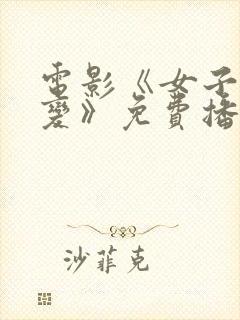 電影《女子
變》免費播
沙菲克